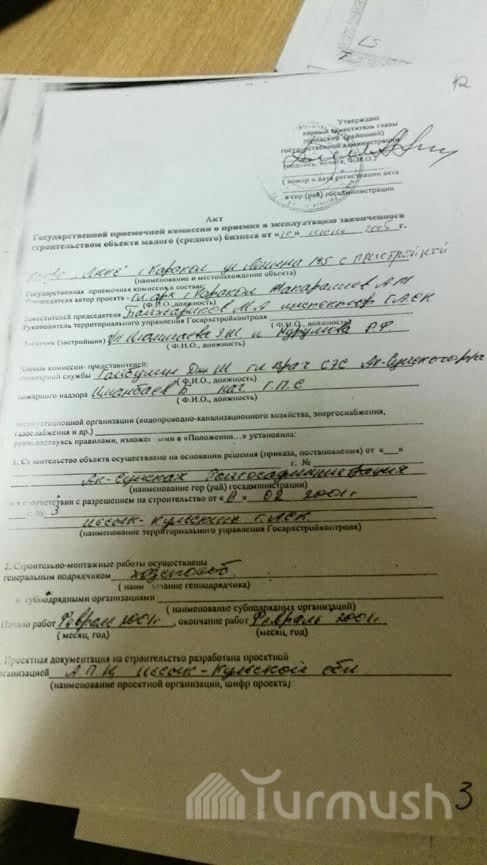 Утверждаю
первый заместитель главы
городской (районной)
государственной администрации
(подпись, печать, Ф.И.О.)
( номер и дата регистрации акта
в гор (рай) госадминистрации
Акт
Государственной приемочной комиссии о приемке в эксплуатацию законченного
строительством объекта малого (среднего) бизнеса от « » июня 2005 г.
"Акже" г Каракол ул Ленина 195 с пристройкой
(наименование и местонахождение объекта)
Государственная приемочная комиссия в составе:
Председателя автор проекта - гл арх г Каракол Жакаралиев А Т
(Ф.И.О.,должность)
Заместителей председателя Байжариков М.А инспектор ГАСК
Руководитель территориального управления Госархстройконтроля
Заказчик (застройщик) Э.Ж и Нурумова Р.Ф
( Ф.И.О., должность)
Члены комиссии- представителей:
санитарной службы Дж Ш гл врач СЭС Ак-Суйского р-на
( Ф.И.О., должность)
пожарного надзора Иманбаев Б нач Г.П.С
( Ф.И.О., должность)
эксплуатационной организации (водопроводно-канализационного хозяйства, энергоснабжения,
газоснабжения и др.)
руководствуясь правилами, изложенными в "Положении..." установила:
1. Строительство объекта осуществлено на основании решения (приказа, постановления) от «___»
г. №
Ак-Суйская Райгосадминистрация
(наименование гор (рай) госадминистрации)
и в соответствии с разрешением на строительство от « 8 » 02 2001г
г. № 3
Иссык-Кульский ГАСК
(наименование территориального управления Госархстройконтроля)
2. Строительно-монтажные работы осуществлены
генеральным подрядчиком хозспособ
( наименование генподрядчика)
и субподрядными организациями
( наименование субподрядных организаций)
Начало работ Февраль 2001г , окончание работ Февраль 2001г.
( месяц, год) (месяц, год)
3. Проектная документация на строительство разработана проектной
организацией А.П.Ц Иссык-Кульской обл
(наименование проектной организации, шифр проекта)
3
Turmush